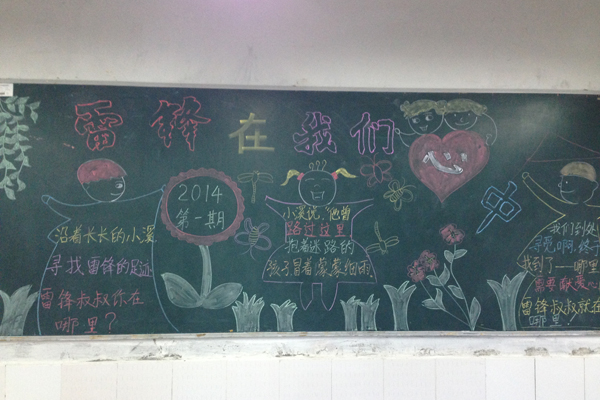 雷锋在我们心中
沿着长长的小溪
寻找雷锋的足迹
雷锋叔叔你在
哪里？
2014
第一期
小溪说，他曾
路过这里
抱着迷路的
孩子冒着蒙蒙细雨
我们到处
寻觅啊，终于
找到了——哪里
需要献爱心
雷锋叔叔就在
哪里！